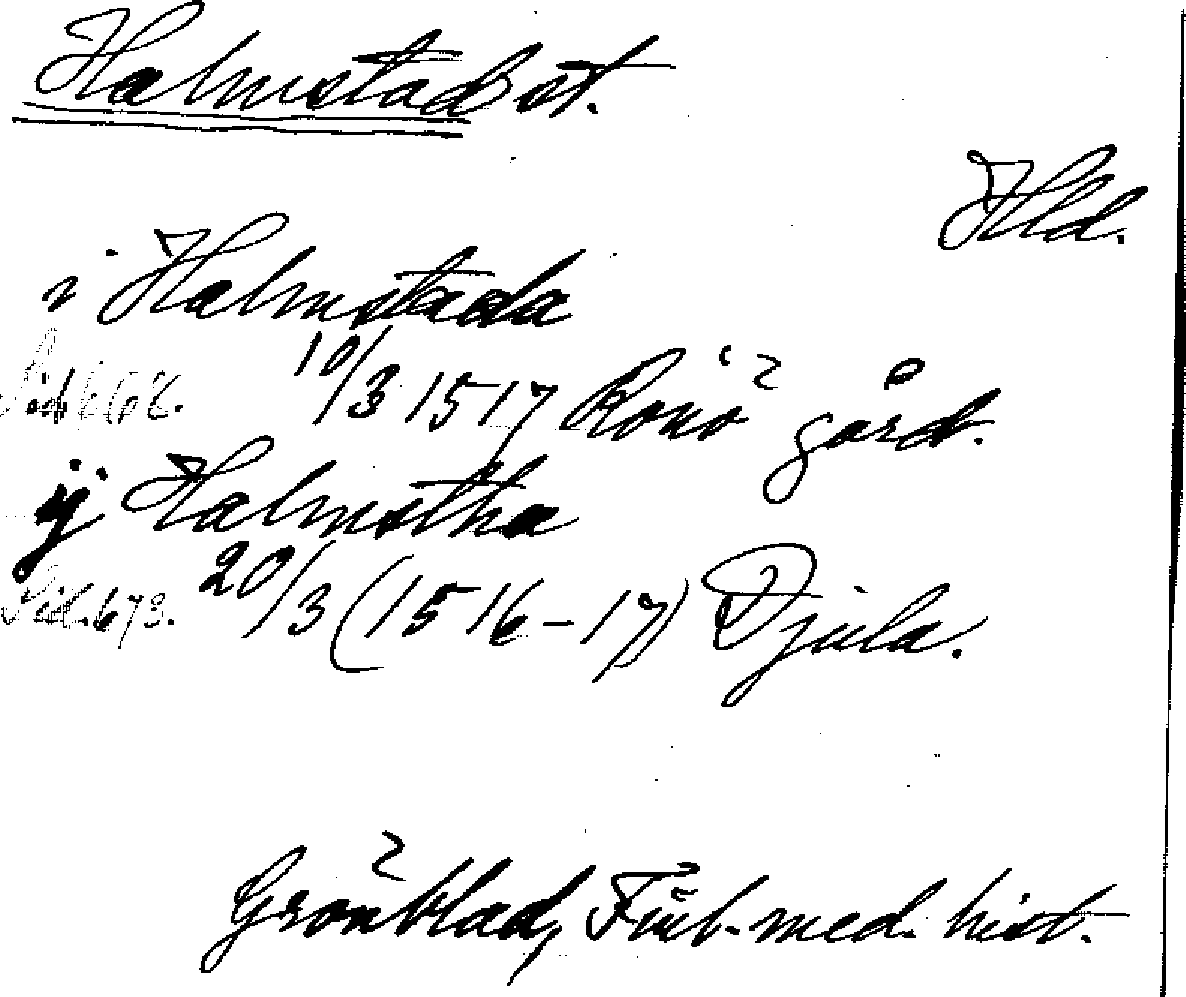 Halmstad st.
Hld.
i Halmstada
10/3 1517 Rönö gård.
ij Halmstha
Sid. 673. 20/3 (1516-17) Djula.
Grönblad, Finl. med. hist.